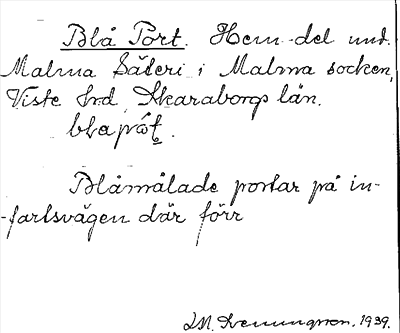 Blå Port. Hem-del und.
Malma Säteri i Malma socken,
Viste hd, Skaraborgs län.
blapôt.
Blåmålade portar på in-
-fartsvägen där förr
1939.